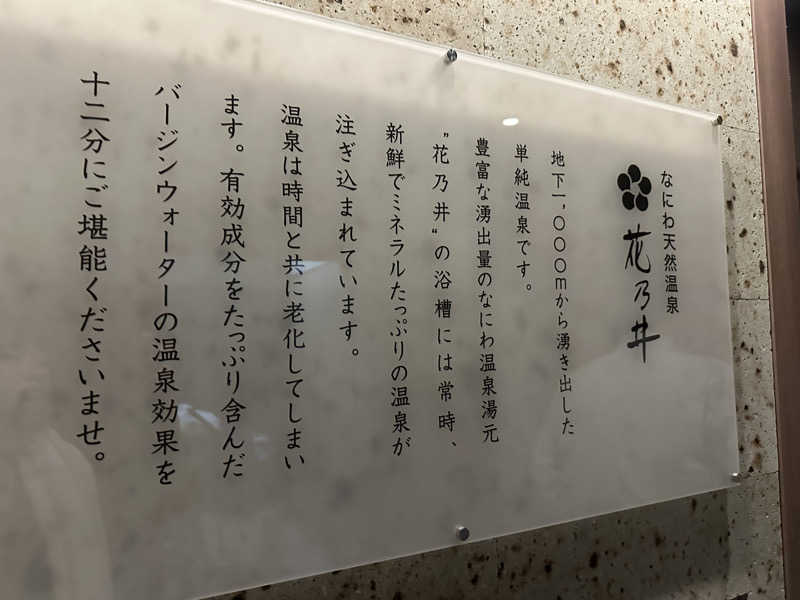 なにわ天然温泉
花乃井
地下一,〇〇〇mから湧き出した
単純温泉です。
豊富な湧出量のなにわ温泉湯元
"花乃井"の浴槽には常時、
新鮮でミネラルたっぷりの温泉が
注ぎ込まれています。
温泉は時間と共に老化してしまい
ます。有効成分をたっぷり含んだ
バージンウォーターの温泉効果を
十二分にご堪能くださいませ。